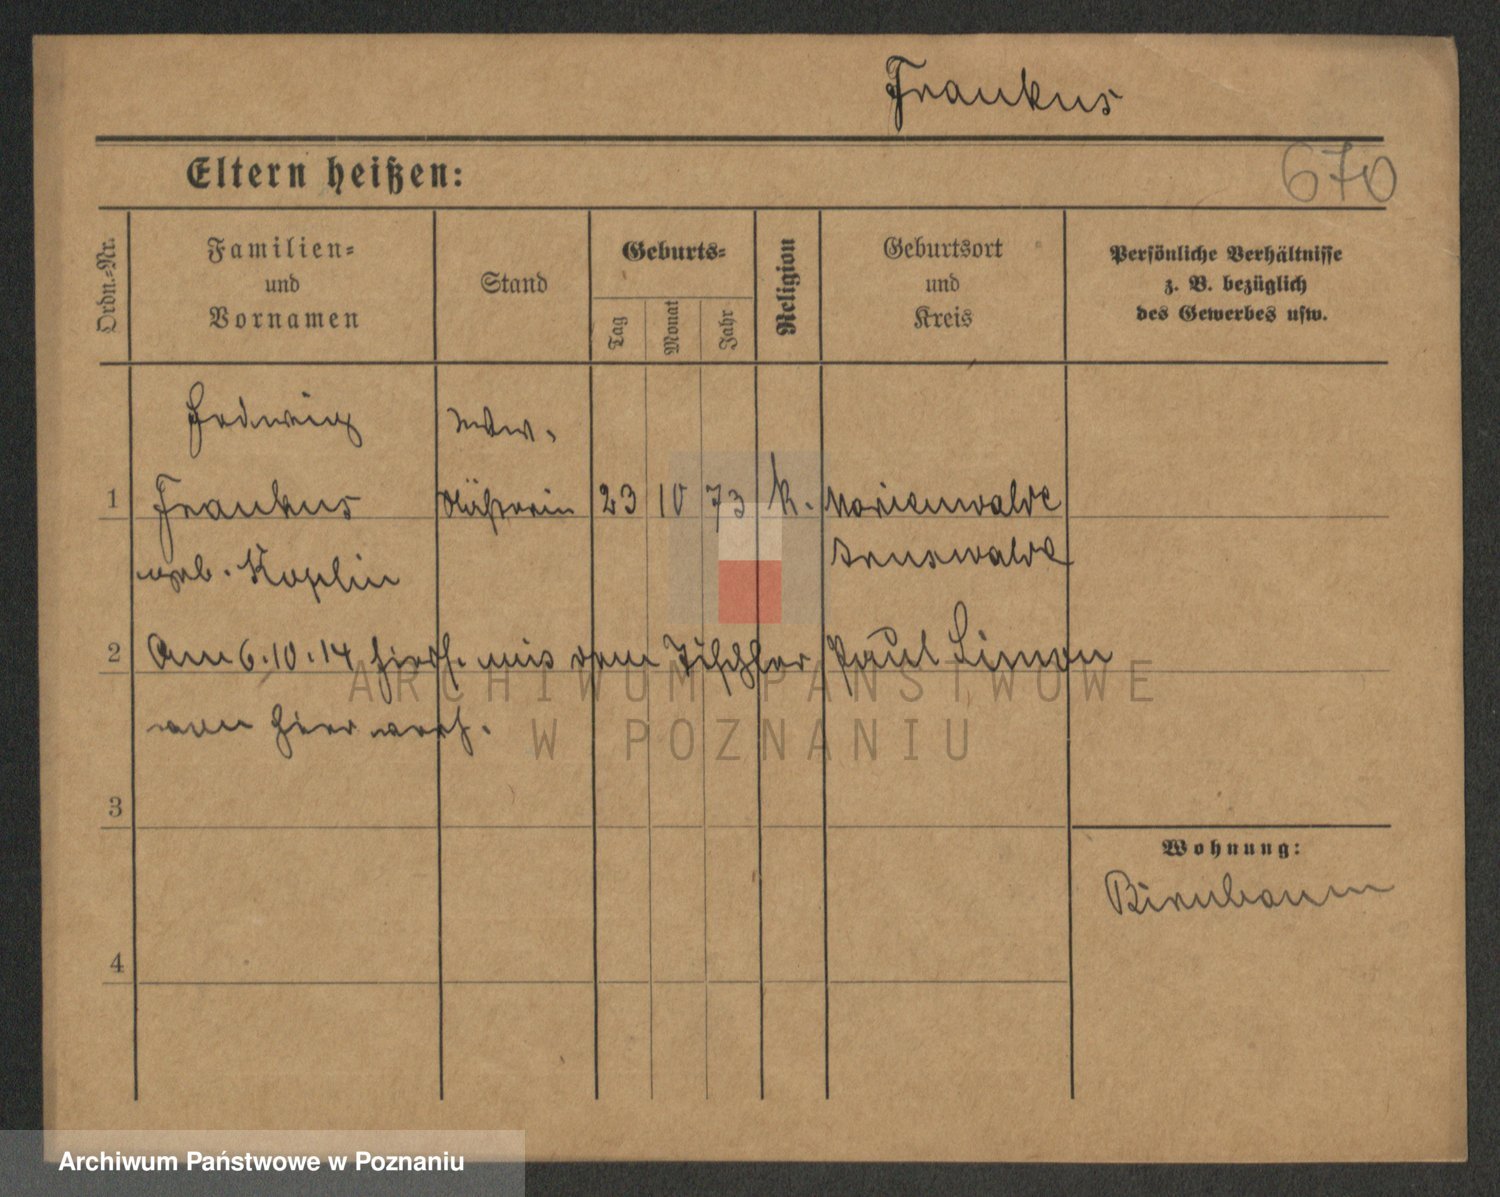 Frankus
670
Eltern heißen:
Ordn.-Nr.
Familien-
und
Vornamen
Stand
Geburts-
Tag
Monat
Jahr
Religion
Geburtsort
und
Kreis
Persönliche Verhältnisse
z. B. bezüglich
des Gewerbes usw.
Hedwig
Wtw.
1 Frankus Näherin 23 10 73 k. Marienwalde
geb. Koplin Arnswalde
2 Am 6.10.14 hier mit dem Tischler Paul Simon
von hier verh.
3
Wohnung:
Birnbaum
4
ARCHIWUM PAŃSTWOWE
W POZNANIU
Archiwum Państwowe w Poznaniu